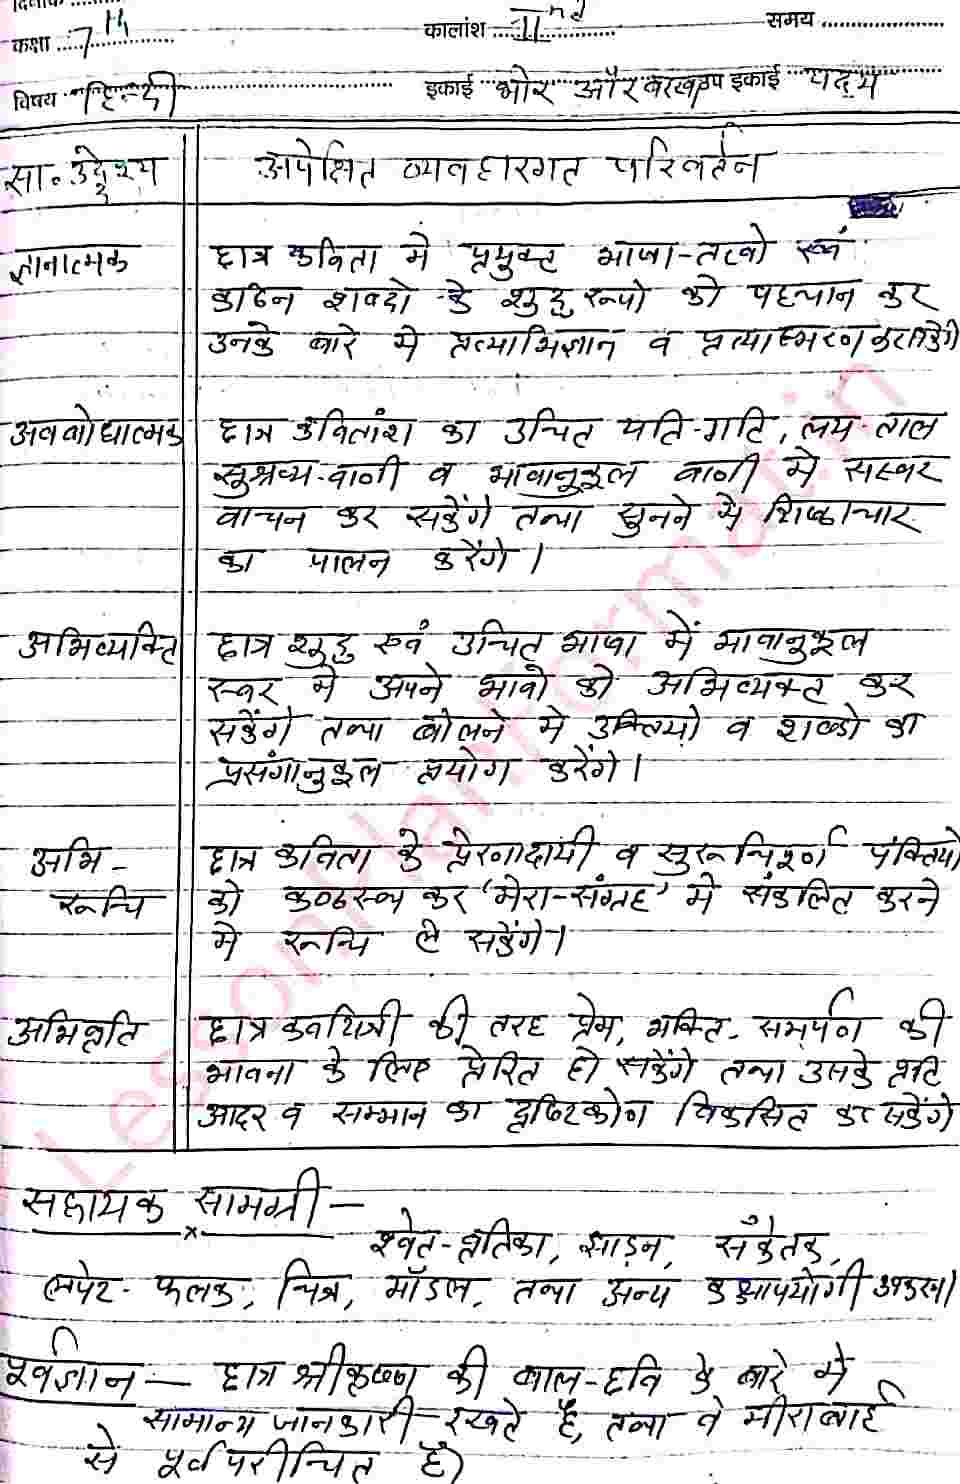 दिनांक
कक्षा 7th कालांश IInd समय
विषय हिन्दी इकाई भोर और बरखा उप इकाई पद्य
सा॰ उद्देश्य अपेक्षित व्यवहारगत परिवर्तन
ज्ञानात्मक छात्र कविता मे प्रयुक्ट भाषा-तत्वो एवं
कठिन शब्दो के शुद्ध रूपो को पहचान कर
उनके बारे मे प्रत्याभिज्ञान व प्रत्यास्मरण कर सकेंगे
अवबोधात्मक छात्र कवितांश का उचित यति-गति, लय-ताल
सुश्रव्य-वाणी व भावानुकूल वाणी मे सस्वर
वाचन कर सकेंगे तथा सुनने मे शिष्टाचार
का पालन करेंगे।
अभिव्यक्ति छात्र शुद्ध एवं उचित भाषा में भावानुकूल
स्वर मे अपने भावो को अभिव्यक्त कर
सकेंगे तथा बोलने मे उक्तियो व शब्दो का
प्रसंगानुकूल प्रयोग करेंगे।
अभि- छात्र कविता के प्रेरणादायी व सुरूचिपूर्ण पंक्तियो
रूचि को कण्ठस्थ कर 'मेरा-संग्रह' मे संकलित करने
मे रूचि ले सकेंगे।
अभिवृति छात्र कवयित्री की तरह प्रेम, भक्ति, समर्पण की
भावना के लिए प्रेरित हो सकेंगे तथा उसके प्रति
आदर व सम्मान का दृष्टिकोण विकसित कर सकेंगे
सहायक सामग्री –
श्वेत-वर्तिका, झाड़न, संकेतक,
लपेट-फलक, चित्र, मॉडल, तथा अन्य
पूर्वज्ञान — छात्र श्रीकृष्ण की बाल-छवि के बारे मे
सामान्य जानकारी रखते है, तथा वे मीराबाई
से पूर्वपरीचित है।
LessonPlanFormat.in